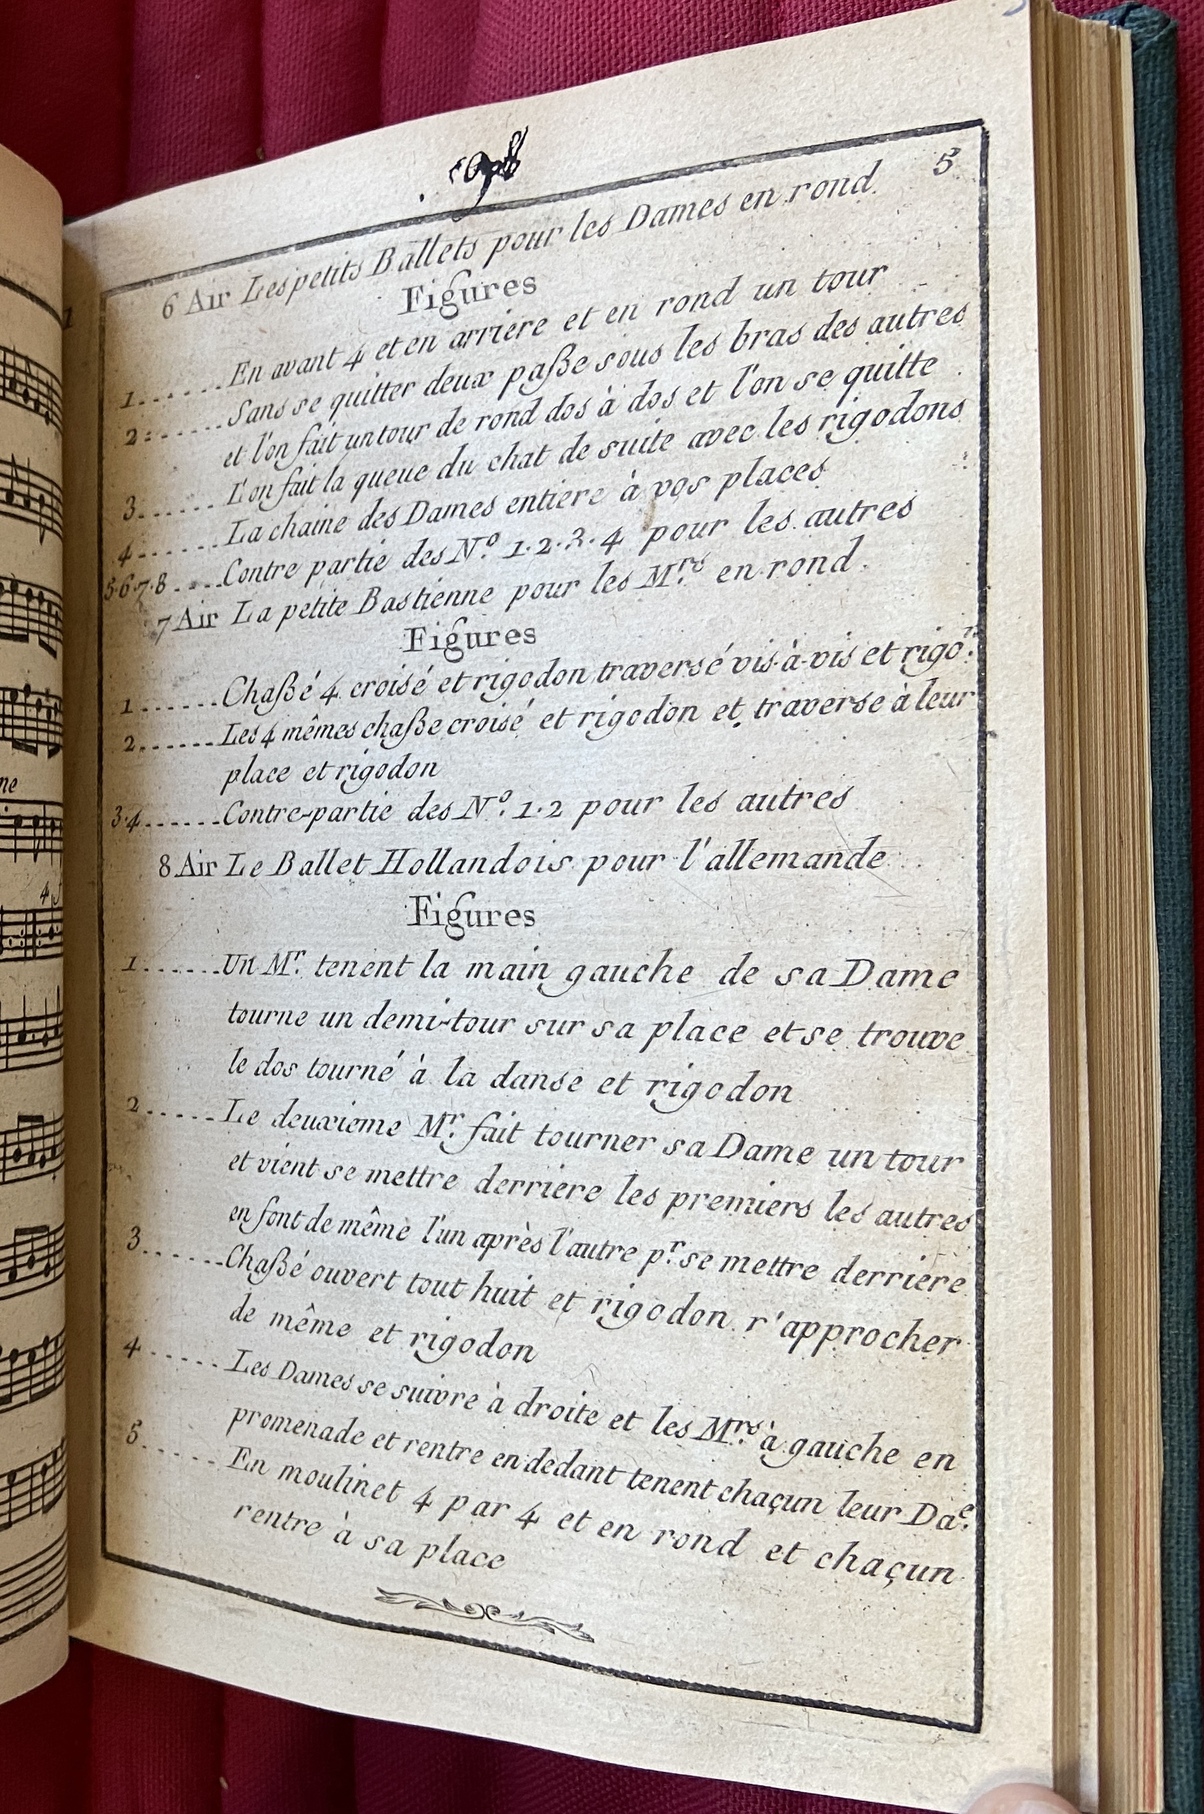 5
6 Air Les petits Ballets pour les Dames en rond.
Figures
1....... En avant 4 et en arriere et en rond un tour
2....... Sans se quitter deux paße sous les bras des autres
et l'on fait un tour de rond dos à dos et l'on se quitte
3....... L'on fait la queue du chat de suite avec les rigodons
4....... La chaine des Dames entiere à vos places
5.6.7.8.... Contre partie des N.º 1.2.3.4 pour les autres
7 Air La petite Bastienne pour les M.rs en rond.
Figures
1....... Chaßé 4 croisé et rigodon traversé vis-à-vis et rigo.n
2....... Les 4 mêmes chaße croisé et rigodon et traverse à leur
place et rigodon
3.4....... Contre-partie des N.º 1.2 pour les autres
8 Air Le Ballet Hollandois pour l'allemande
Figures
1....... Un M.r tenent la main gauche de sa Dame
tourne un demi-tour sur sa place et se trouve
le dos tourné à la danse et rigodon
2....... Le deuxieme M.r fait tourner sa Dame un tour
et vient se mettre derriere les premiers les autres
en font de même l'un après l'autre p.r se mettre derriere
3....... Chaßé ouvert tout huit et rigodon r'approcher
de même et rigodon
4....... Les Dames se suivre à droite et les M.rs à gauche en
promenade et rentre en dedant tenent chaçun leur Da.e
5....... En moulinet 4 par 4 et en rond et chaçun
rentre à sa place